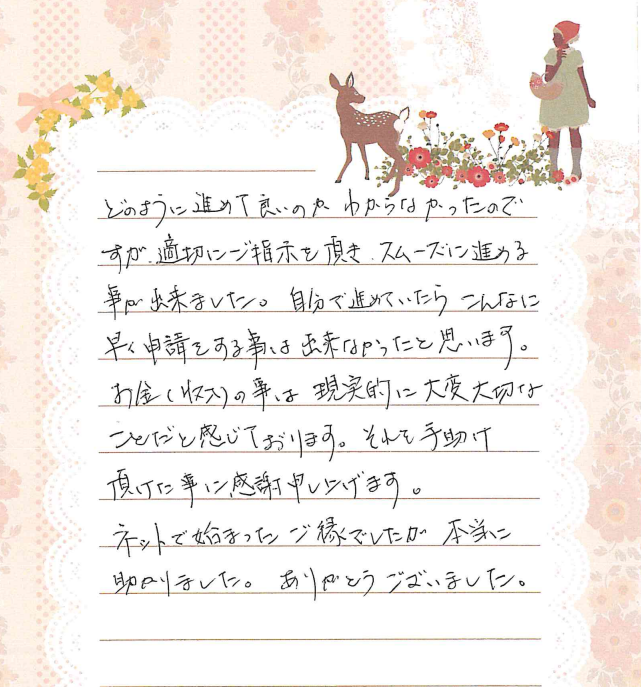 どのように進めて良いのか わからなかったので
すが、適切にご指示を頂き、スムーズに進める
事が出来ました。 自分で進めていたら こんなに
早く申請をする事は出来なかったと思います。
お金(収入)の事は 現実的に大変大切な
ことだと感じております。それを手助け
頂けた事に感謝申し上げます。
ネットで始まったご縁でしたが 本当に
助かりました。 ありがとうございました。